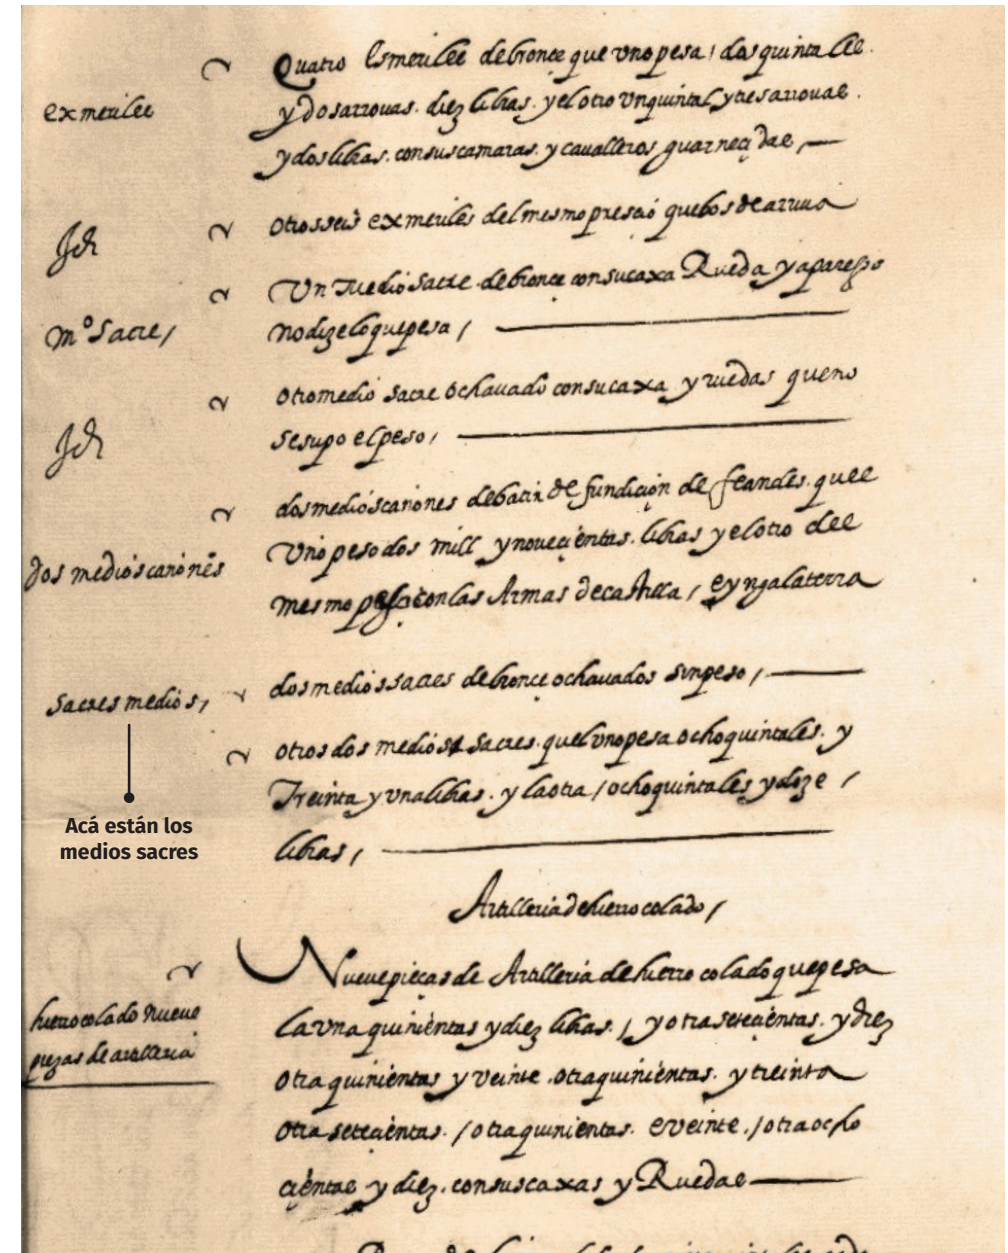 Quatro Esmeriles de bronce que uno pesa / dos quintales.
exmeriles
y dos arrouas. diez libras. y el otro un quintal y tres arrouas.
y dos libras. con sus camaras. y cavalleros guarneçidas,
Jdr
otros seis exmeriles del mesmo que hos de arriua
Un medio sacre de bronce con su caxa Rueda y aparejos
mº Sacre,
no dize lo que pesa /
otro medio sacre ochauado con su caxa y ruedas que no
Jdr
se supo el peso,
dos medios cañones de batir de fundiçion de flandes. que el
dos medios cañones
Uno peso dos mill y noveçientas. libras y el otro del
mesmo peso con las Armas de castilla, e yngalaterra
sacres medios,
dos medios sacres de bronce ochauados sin peso,
otros dos medios sacres. que el uno pesa ocho quintales. y
Treinta y una libras. y la otra / ocho quintales y doze /
Acá están los
medios sacres
libras,
Artilleria de hierro colado,
Nueue pieças de Artilleria de hierro colado que pesa
hierro colado nueue
la una quinientas y diez libras. / y otra seteçientas. y diez
piezas de artilleria
otra quinientas y veinte. otra quinientas. y treinta
otra seteçientas. / otra quinientas. e veinte. / otra ocho
çientas y diez. con sus caxas y Ruedas